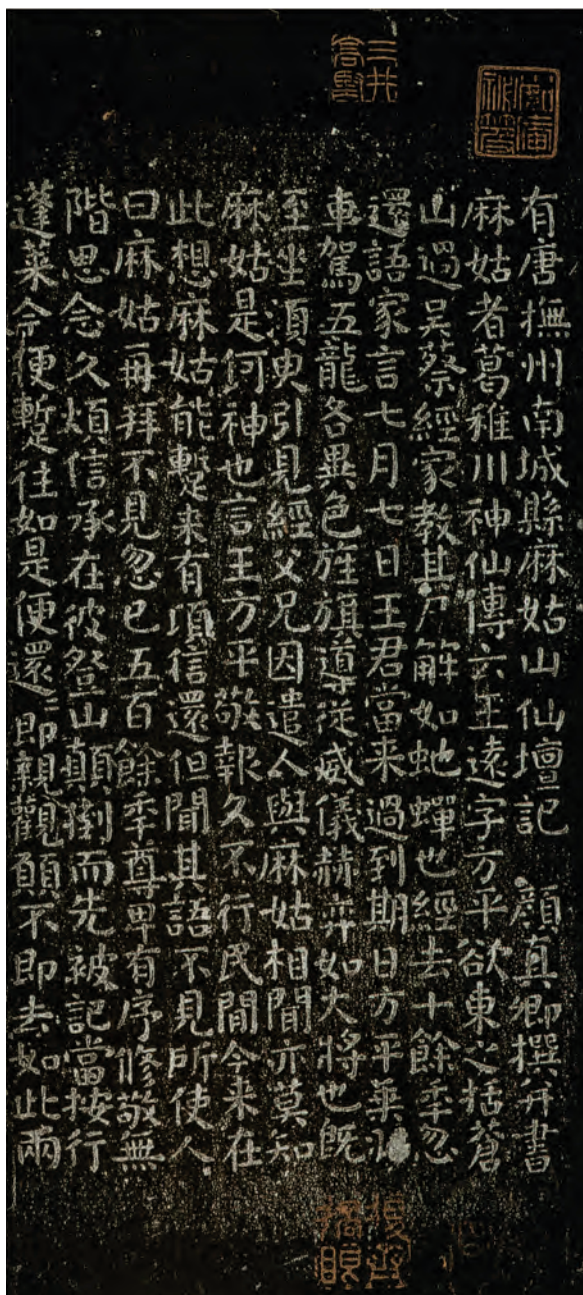 三井高堅
有唐撫州南城縣麻姑山仙壇記 顏真卿撰并書
麻姑者葛稚川神仙傳云王遠字方平欲東之括蒼
山過吳蔡經家教其尸解如虵蟬也經去十餘秊忽
還語家言七月七日王君當来過到期日方平乘羽
車駕五龍各異色旌旗導從威儀赫弈如大將也既
至坐須臾引見經父兄因遣人與麻姑相聞亦莫知
麻姑是何神也言王方平敬報久不行民間今来在
此想麻姑能蹔来有頃信還但聞其語不見所使人
曰麻姑再拜不見忽已五百餘秊尊卑有序修敬無
階思念久煩信承在彼登山顛倒而先被記當按行
蓬萊今便蹔往如是便還〻即親觀願不即去如此兩